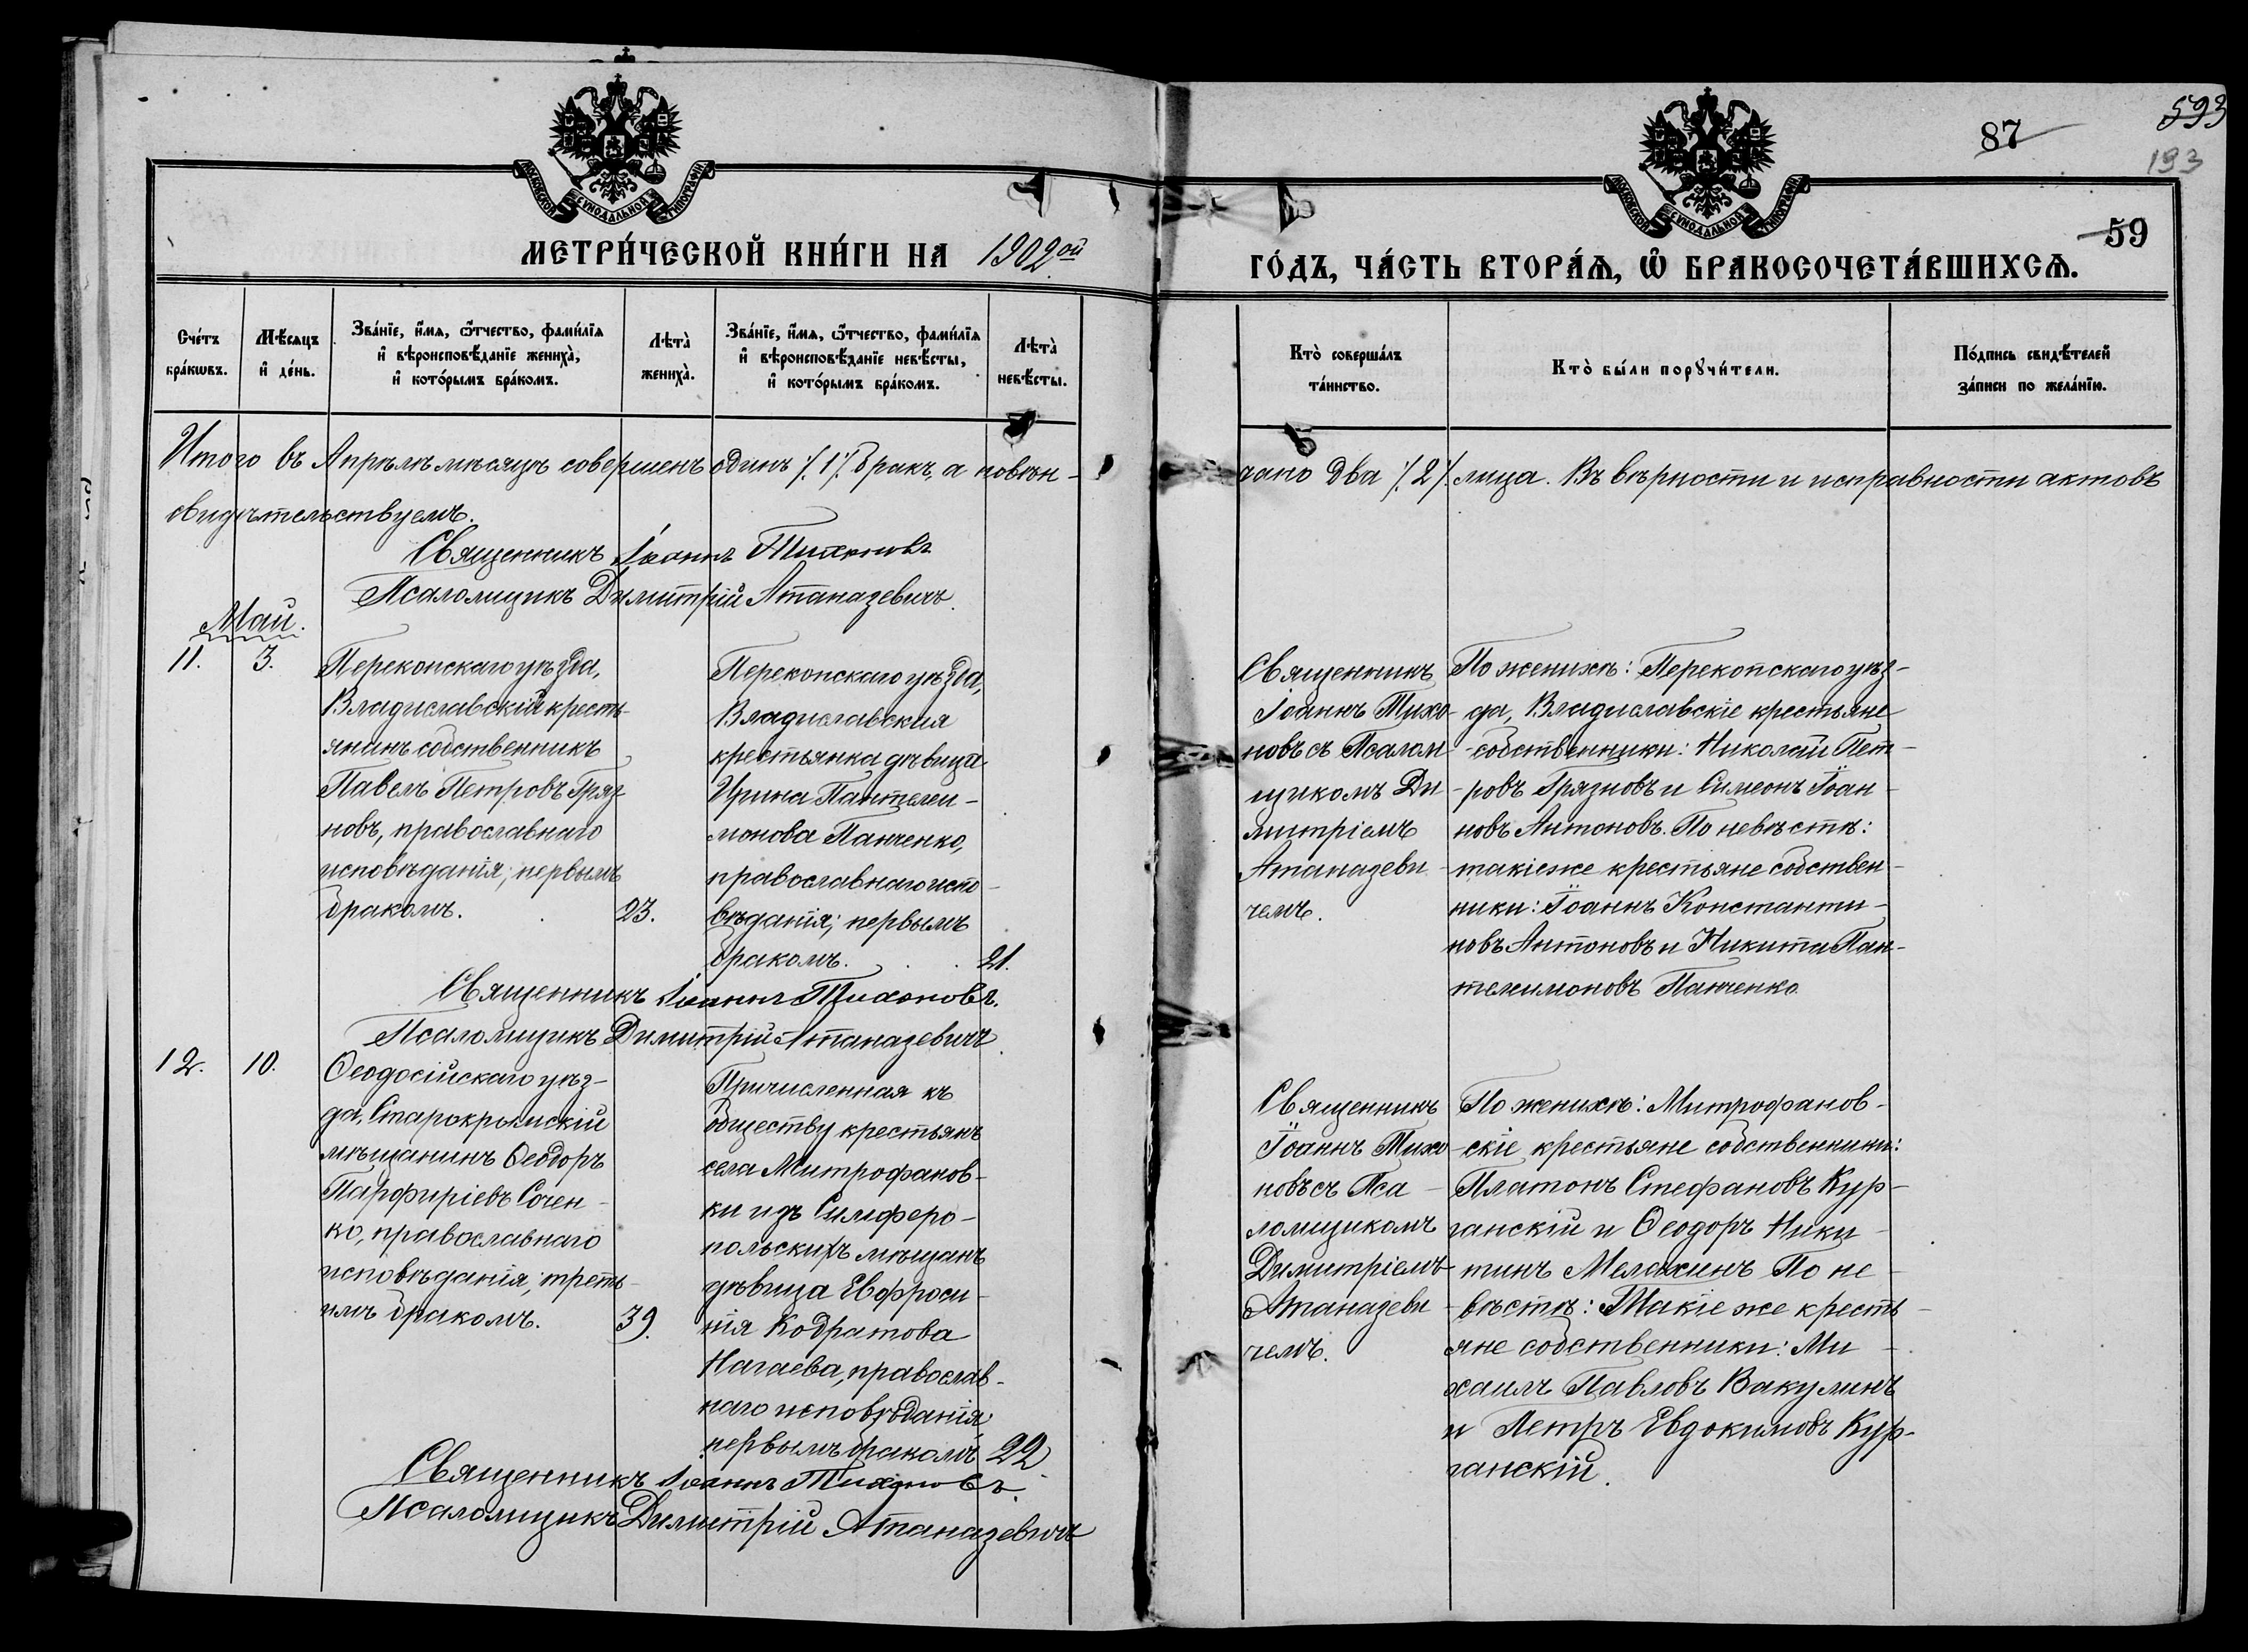 593
87
193
59
МОСКОВСКОЙ СѴНОДАЛЬНОЙ ТИПОГРАФІИ
МОСКОВСКОЙ СѴНОДАЛЬНОЙ ТИПОГРАФІИ
МЕТРИ́ЧЕСКОЙ КНИ́ГИ НА 1902ой
ГО́ДЪ, ЧА́СТЬ ВТОРА́Ѧ, Ѽ БРАКОСОЧЕТА́ВШИХСѦ.
Сче́тъ
бра́кωвъ.
Мѣ́сѧцъ
и҆ де́нь.
Зва́нїе, и҆́мѧ, ѻ҆́тчество, фами́лїѧ
и҆ вѣроисповѣ́данїе жениха̀,
и҆ кото́рымъ бра́комъ.
Лѣта̀
жениха̀.
Зва́нїе, и҆́мѧ, ѻ҆́тчество, фами́лїѧ
и҆ вѣроисповѣ́данїе невѣ́сты,
и҆ кото́рымъ бра́комъ.
Лѣта̀
невѣ́сты.
Кто̀ соверша́лъ
та́инство.
Кто̀ бы́ли порꙋчи́тели.
По́дпись свидѣ́телей
за́писи по жела́нїю.
Итого въ Апрѣлѣ мѣсяцѣ совершенъ одинъ /.1./ бракъ, а повѣн-
чано два /.2./ лица. Въ вѣрности и исправности актовъ
свидѣтельствуемъ.
Священникъ Іоаннъ Тихоновъ
Псаломщикъ Димитрій Атаназевичъ.
Май.
11.
3.
Перекопскаго уѣзда,
Владиславскій кресть-
янинъ собственникъ
Павелъ Петровъ Гряз-
новъ, православнаго
исповѣданія; первымъ
бракомъ.
23.
Перекопскаго уѣзда,
Владиславская
крестьянка дѣвица
Ирина Пантелеи-
монова Панченко,
православнаго испо-
вѣданія; первымъ
бракомъ.
21.
Священникъ
Іоаннъ Тихо-
новъ съ Псалом-
щикомъ Ди-
митріемъ
Атаназеви-
чемъ.
По женихѣ: Перекопскаго уѣз-
да, Владиславскіе крестьяне
собственники: Николай Пет-
ровъ Грязновъ и Симеонъ Іоан-
новъ Антоновъ. По невѣстѣ:
такіе же крестьяне собствен-
ники: Іоаннъ Константи-
новъ Антоновъ и Никита Пан-
телеимоновъ Панченко.
Священникъ Іоаннъ Тихоновъ.
Псаломщикъ Димитрій Атаназевичъ.
12.
10.
Ѳеодосійскаго уѣз-
да, Старокрымскій
мѣщанинъ Ѳеодоръ
Парфиріевъ Сочен-
ко, православнаго
исповѣданія; треть-
имъ бракомъ.
39.
Причисленная къ
обществу крестьянъ
села Митрофанов-
ки изъ Симферо-
польскихъ мѣщанъ
дѣвица Евфроси-
нія Кодратова
Нагаева, православ-
наго исповѣданія
первымъ бракомъ
22.
Священникъ
Іоаннъ Тихо-
новъ съ Пса-
ломщикомъ
Димитріемъ
Атаназеви-
чемъ.
По женихѣ: Митрофанов-
скіе крестьяне собственники:
Платонъ Стефановъ Кур-
ганскій и Ѳеодоръ Ники-
тинъ Мелахинъ По не-
вѣстѣ: Такіе же кресть-
яне собственники: Ми-
хаилъ Павловъ Вакулинъ
и Петръ Евдокимовъ Кур-
ганскій.
Священникъ Іоаннъ Тихоновъ.
Псаломщикъ Димитрій Атаназевичъ